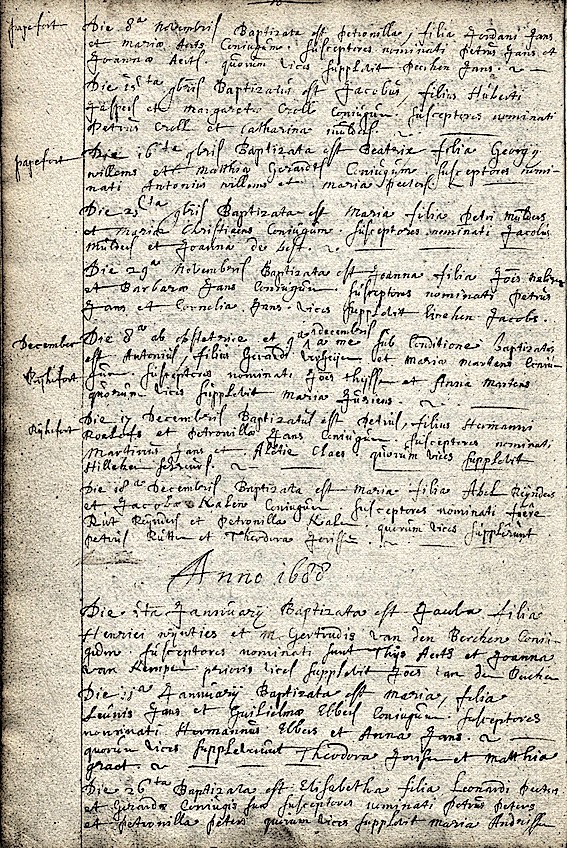 papefort Die 8a Novembris Baptizata est petronilla, filia Jordani Jans
et Mariæ Aerts Coniugum. Susceptores nominati petrus Jans et
Joanna Aerts quorum vices supplevit Peerken Jans.
Die 15ta 9bris Baptizatus est Jacobus, filius Huberti
Jaspers et Margareta Croll Coniugum. Susceptores nominati
petrus Croll et Catharina
papefort Die 16ta 9bris Baptizata est Beatrix filia Georgij
willems et Matthiæ Gerardts Coniugum susceptores nomi-
nati Antonius willems et Maria
Die 25ta 9bris Baptizata est Maria filia petri mulders
et Mariæ Christiaens Coniugum. Susceptores nominati Jacobus
mulders et Joanna de best.
Die 29a Novembris Baptizata est Joanna filia Jois
et Barbaræ Jans Coniugum susceptores nominati petrus
Jans et Cornelia Jans. vices supplevit Lineken Jacobs.
December Die 8a ab obstetrice et 9a a me decembris sub Conditione Baptizatus
Rijkefort est Antonius, filius Gerardi et Mariæ martens Coniu-
gum susceptores nominati Jois thyssen et Anna Martens
quorum vices supplevit Maria Juriens.
Rijkefort Die 17 Decembris Baptizatus est petrus, filius Hermanni
Roelofs et petronillæ Jans Coniugum susceptores nominati
Martinus Jans et Aeltie Claes quorum vices supplevit
Hilleken
Die 18a Decembris Baptizata est Maria filia Abel Reynders
et Jacoba Kalen Coniugum susceptores nominati fuere
Rut Reynders et petronilla Kalen quorum vices supplerunt
petrus Rutten et Theodora Jorissen.
Anno 1688
Die Januarij Baptizata est Paula filia
Henrici et M. Gertrudis van den Berchen Coniu-
gum. susceptores nominati sunt Thijs Aerts et Joanna
van Kempen prioris vices supplevit Jois van de
Die Januarij Baptizata est Maria, filia
Leunis Jans et Guilielmæ Ebbers Coniugum. susceptores
nominati Hermannus Ebbers et Anna Jans.
quorum vices suppleverunt Theodora Jorissen et Matthia
graet
Die 26ta Baptizata est Elisabetha filia Leonardi peters
et Gerardæ Coniugis suæ susceptores nominati petrus peters
et petronilla peters quorum vices supplevit Maria Andrissen